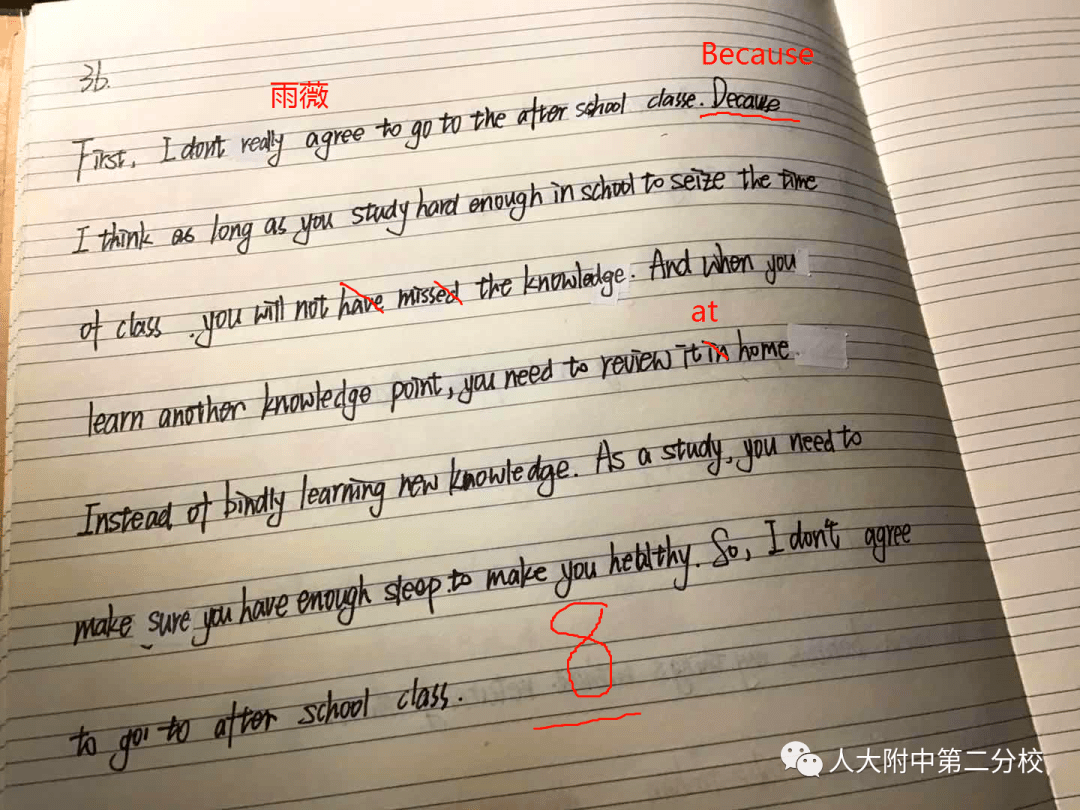 3b.
雨薇
Because
First, I don't really agree to go to the after school classe. Decause
I think as long as you study hard enough in school to seize the time
of class .you will not have missed the knowledge. And when you
at
learn another knowledge point, you need to review it in home.
Instead of bindly learning new knowledge. As a study, you need to
make sure you have enough sleep.to make you healthy. So, I don't agree
8
to go to after school class.
人大附中第二分校